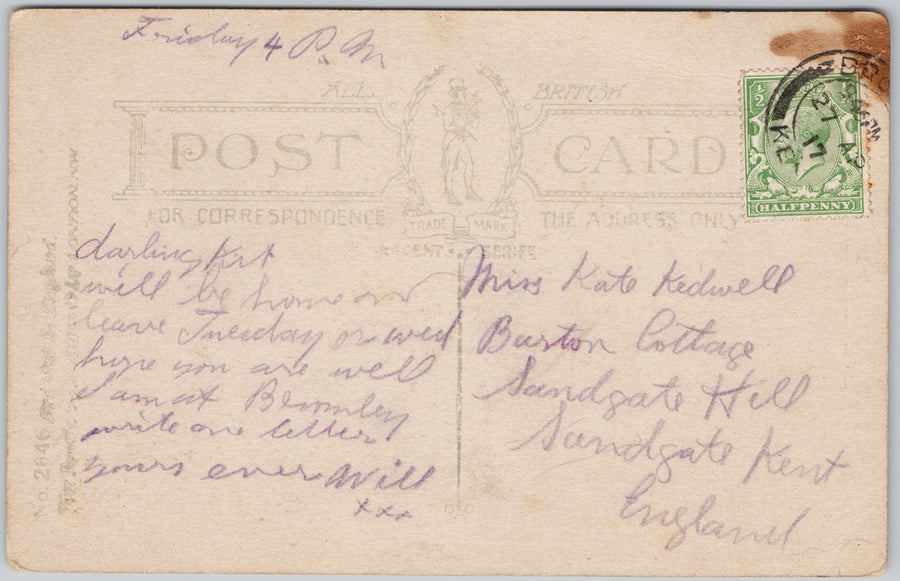 Friday 4 P.M
ALL BRITISH
POST CARD
FOR CORRESPONDENCE THE ADDRESS ONLY
TRADE MARK
REGENT SERIES
HALFPENNY
½
BRO
KE
PM
27 AP
17
darling Kit
will be home on
leave Tuesday or wed
hope you are well
I am at Bromley
write one letter
yours ever Will
xxx
Miss Kate Kedwell
Burton Cottage
Sandgate Hill
Sandgate Kent
England
No. 2846
LONDON NW